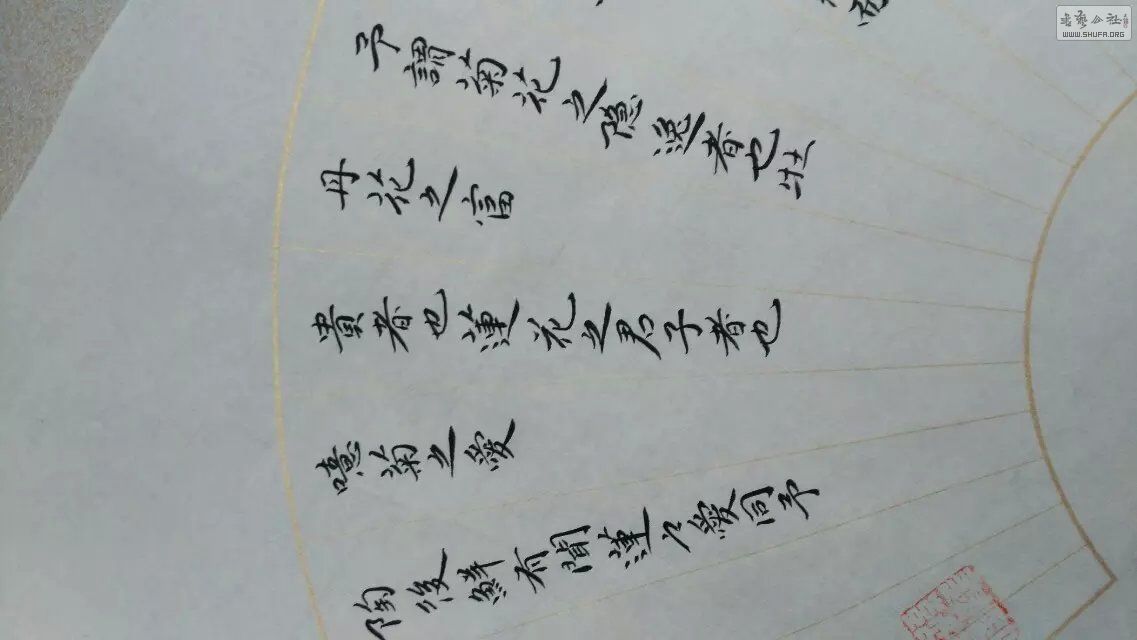 予謂菊花之隐逸者也牡
丹花之富
貴者也蓮花之君子者也
噫菊之愛
陶後鮮有聞蓮之愛同予
书艺公社
WWW.SHUFA.ORG